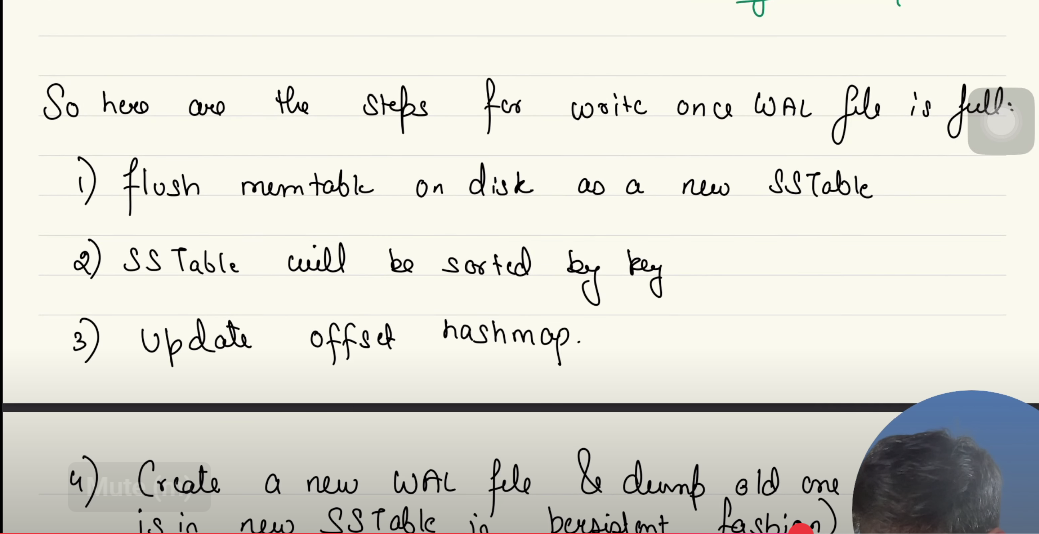 So here are the steps for write once WAL file is full:
1) flush memtable on disk as a new SSTable
2) SSTable will be sorted by key
3) Update offset hashmap.
4) Create a new WAL file & dump old one
is in new SSTable in persistent fashion)